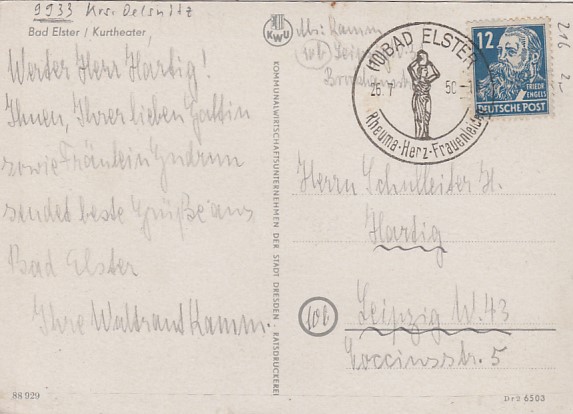 9933 Krs. Oelsnitz
Bad Elster / Kurtheater
Werter Herr Härtig!
Ihnen, Ihrer lieben Gattin
sowie Fräulein Gudrun
sendet beste Grüße aus
Bad Elster
Ihre Waltraut Kamm.
88 929
KWU
KOMMUNALWIRTSCHAFTSUNTERNEHMEN DER STADT DRESDEN · RATSDRUCKEREI
Kamm
(10b) Leipzig
(10) BAD ELSTER
26.7 50
Rheuma-Herz-Frauenleiden
12
FRIEDR.
ENGELS
DEUTSCHE POST
216
2-
Herrn Schulleiter H.
Hartig
10b
Leipzig W. 43
Coccinsstr. 5
Dr 2 6503